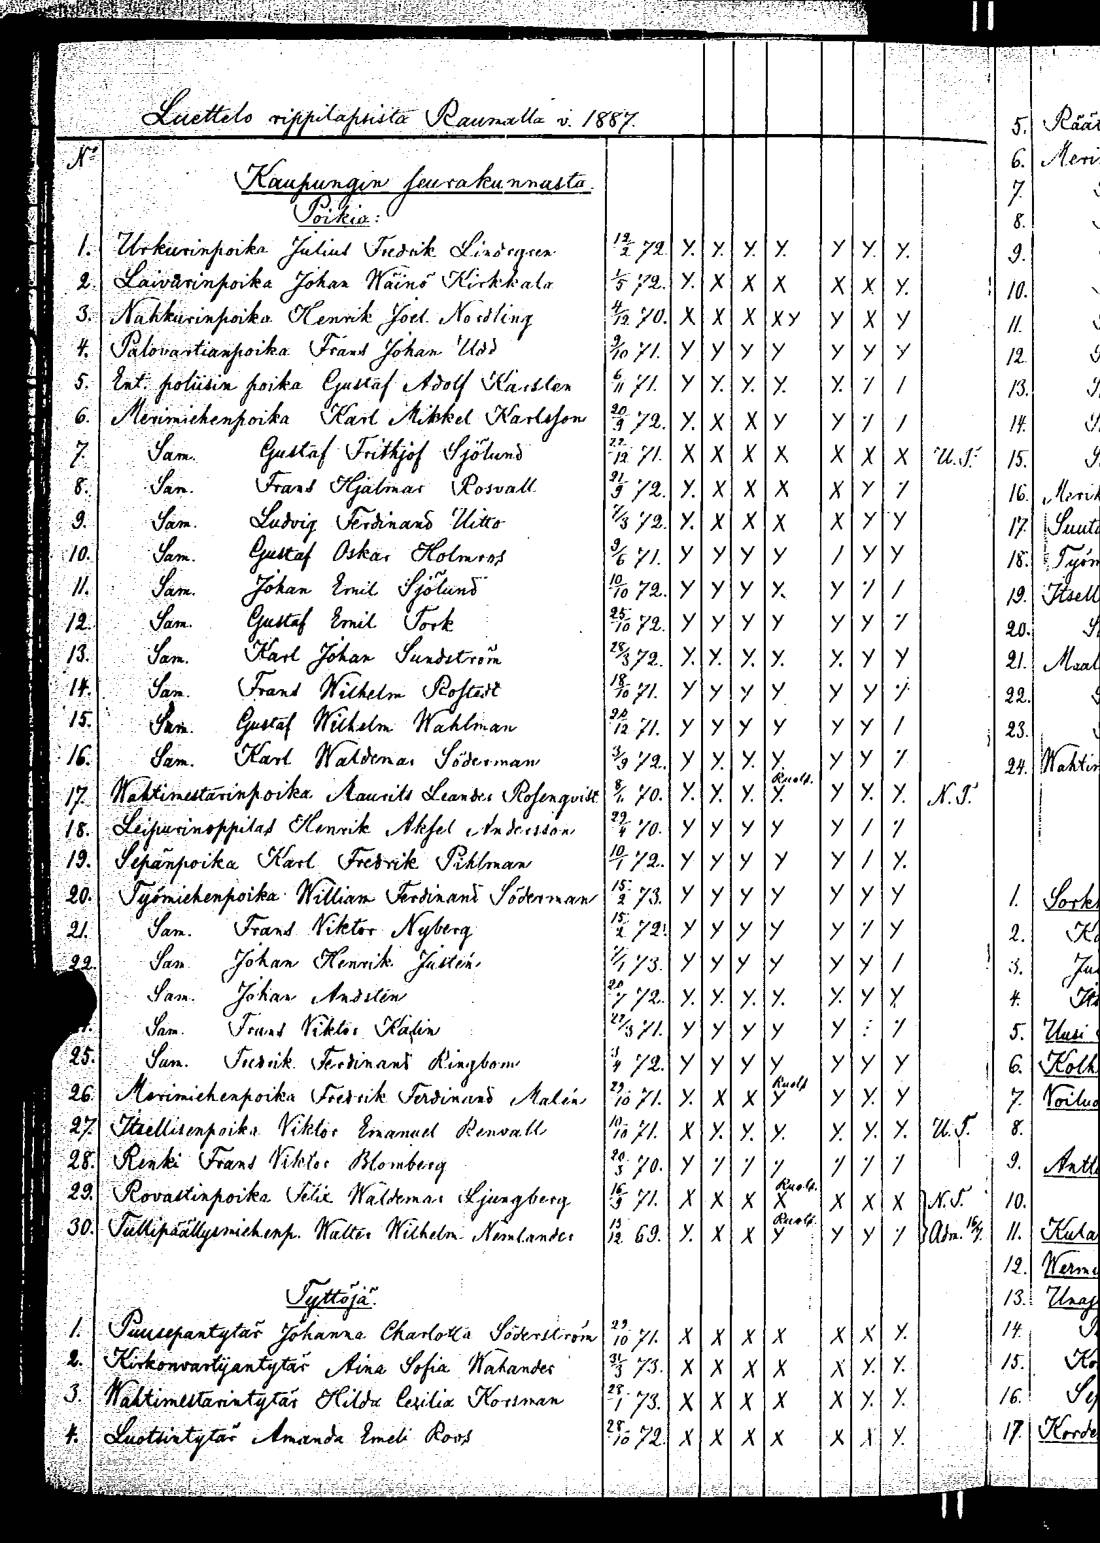 Luettelo rippilapsista Raumalla v. 1887.
No
Kaupungin seurakunnasta.
Poikia:
1. Urkurinpoika Julius Fredrik Lindegren 12/2 72. Y. Y. Y. Y. Y Y. Y.
2. Laivurinpoika Johan Wäinö Kirkkala 1/5 72. Y. X X X X X. Y.
3. Nahkurinpoika Henrik Joel Nordling 4/12 70. X X X X Y Y X Y
4. Palovartianpoika Frans Johan Udd 9/10 71. Y Y Y Y Y Y Y
5. Ent. poliisin poika Gustaf Adolf Karsten 6/11 71. Y Y. Y. Y. Y. / /
6. Merimiehenpoika Karl Mikkel Karlsson 20/9 72. Y. X X Y Y / /
7. Sam. Gustaf Frithjof Sjölund 22/12 71. X X X X X X X U.T.
8. Sam. Frans Hjalmar Rosvall 21/9 72. Y. X X X X Y /
9. Sam. Ludvig Ferdinand Uitto 7/3 72. Y. X X X X Y Y
10. Sam. Gustaf Oskar Holmros 9/6 71. Y Y Y Y / Y Y
11. Sam. Johan Emil Sjölund 10/10 72. Y Y Y Y. Y / /
12. Sam. Gustaf Emil Tork 25/10 72. Y Y Y Y Y Y /
13. Sam. Karl Johan Sundström 28/3 72. Y. Y. Y. Y. Y. Y Y
14. Sam. Frans Wilhelm Rostedt 18/10 71. Y Y Y Y Y Y /
15. Sam. Gustaf Wilhelm Wahlman 20/12 71. Y Y Y Y Y Y /
16. Sam. Karl Waldemar Söderman 3/9 72. Y Y Y. Y. Y Y /
17. Wahtimestarinpoika Maurits Leander Rosenqvist 8/1 70. Y. Y. Y. Y. Ruots. Y Y. Y. N.T.
18. Leipurinoppilas Henrik Aksel Andersson 29/4 70. Y Y Y Y Y / /
19. Sepänpoika Karl Fredrik Pihlman 10/1 72. Y Y Y Y Y / Y.
20. Työmiehenpoika William Ferdinand Söderman 15/2 73. Y Y Y Y Y Y Y
21. Sam. Frans Viktor Nyberg 15/2 72. Y Y Y Y Y / Y
22. Sam. Johan Henrik Justén 7/1 73. Y Y Y Y Y Y /
Sam. Johan Andstén 20/7 72. Y. Y. Y. Y. Y. Y Y.
Sam. Frans Viktor Kalin 22/3 71. Y Y Y Y Y : /
25. Sam. Fredrik Ferdinand Ringbom 3/4 72. Y Y Y Y Y Y Y
26. Merimiehenpoika Fredrik Ferdinand Malén 29/10 71. Y. X X Y Ruots Y Y. Y
27. Itsellisenpoika Viktor Emanuel Renvall 10/10 71. X Y. Y. Y. Y. Y. Y. U.T.
28. Renki Frans Viktor Blomberg 20/3 70. Y / / / / / /
29. Rovastinpoika Felix Waldemar Ljungberg 16/9 71. X X X X Ruots. X X X N.T.
30. Tullipäällysmiehenp. Walter Wilhelm Nemlander 13/12 69. Y. X X Y Ruots. Y Y / Adm.
Tyttöjä.
1. Puusepäntytär Johanna Charlotta Söderström 29/10 71. X X X X X X Y.
2. Kirkonvartijantytär Aina Sofia Wahander 31/3 73. X X X X X Y. Y.
3. Wahtimestarintytär Hilda Cecilia Korsman 28/1 73. X X X X X Y. Y.
4. Luotsintytär Amanda Emeli Roos 28/10 72. X X X X X X Y.
5. Räät
6. Meri
7.
8.
9.
10.
11.
12.
13.
14.
15.
16. Merik
17. Suuta
18. Työm
19. Itsell
20.
21. Maal
22.
23.
24. Wahtim
1. Sork
2. Ko
3. Ju
4. Its
5. Uusi
6. Kolh
7. Voiluo
8.
9. Antt
10.
11. Kula
12. Werm
13. Unaj
14.
15. Ko
16. Sep
17. Korde